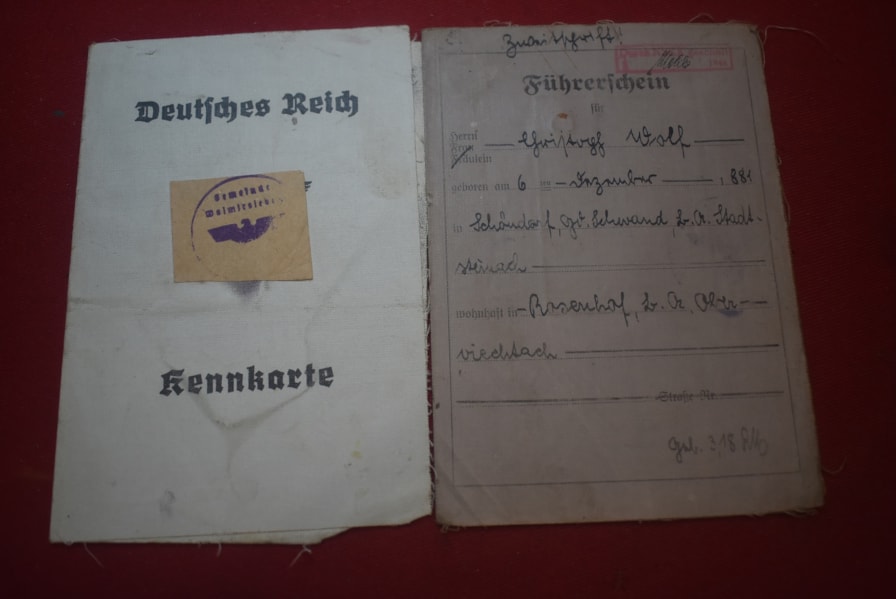 Deutsches Reich
Gemeinde
Kennkarte
Zweitschrift
Führerschein
für
Herrn
Frau
Fräulein
Christoph Wolf
geboren am 6 ten Dezember 1881
in Schöndorf, Gd. Schwand, B. A. Stadt-
steinach
wohnhaft in Rosenhof, B. A. Ober-
viechtach
Straße Nr.
Geb. 3,18